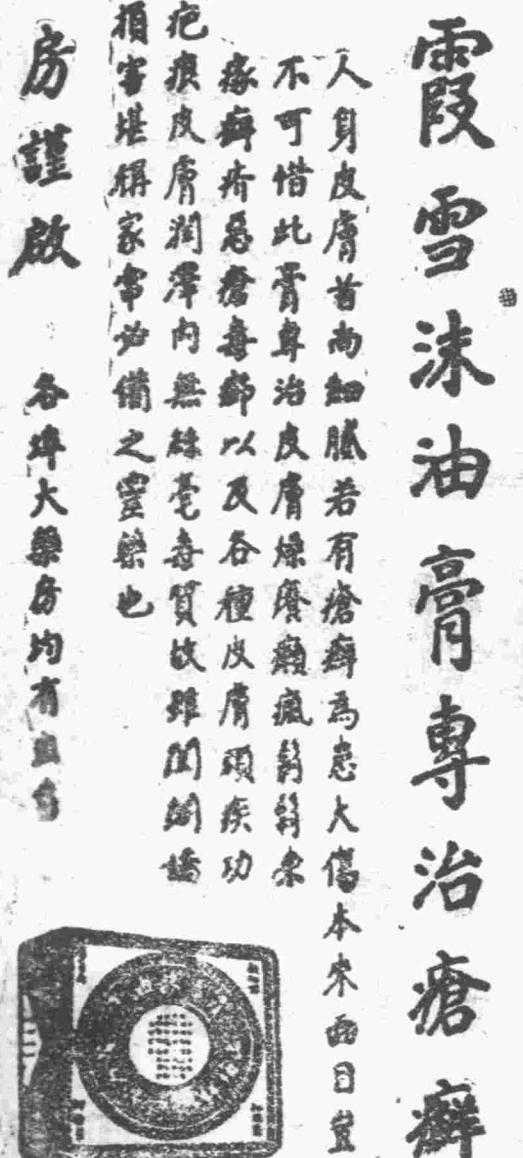 霞雪沫油膏專治瘡癬
人身皮膚首尚細膩若有瘡癬為患大傷本來面目豈
不可惜此膏專治皮膚燥癢癩瘋
癬疥惡瘡毒癤以及各種皮膚頑疾功
疤痕皮膚潤澤內無絲毫毒質故雖閨閣嬌
損害堪稱家常必備之靈藥也
房謹啟
各埠大藥房均有